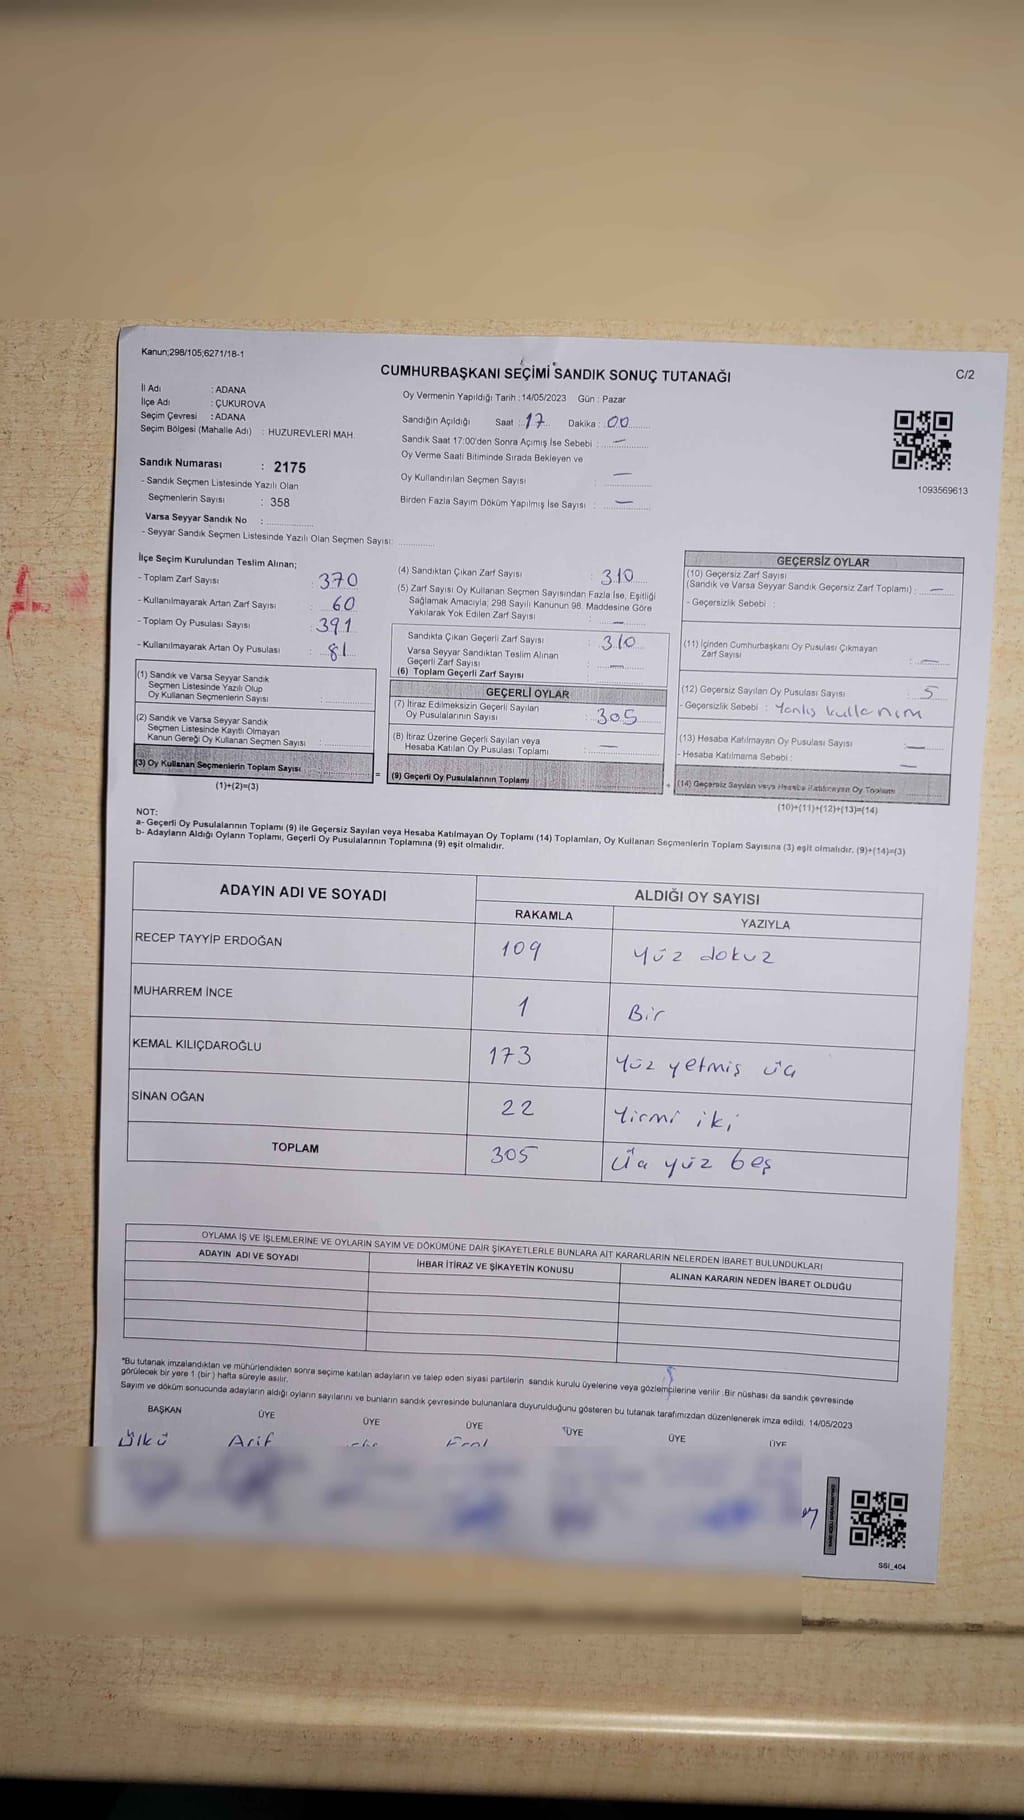 Kanun;298/105;6271/18-1
CUMHURBAŞKANI SEÇİMİ SANDIK SONUÇ TUTANAĞI
C/2
İl Adı : ADANA
İlçe Adı : ÇUKUROVA
Seçim Çevresi : ADANA
Seçim Bölgesi (Mahalle Adı) : HUZUREVLERİ MAH.
Oy Vermenin Yapıldığı Tarih : 14/05/2023 Gün : Pazar
Sandığın Açıldığı Saat : 17 Dakika : 00
Sandık Saat 17:00'den Sonra Açımış İse Sebebi : —
Oy Verme Saati Bitiminde Sırada Bekleyen ve
Oy Kullandırılan Seçmen Sayısı : —
Birden Fazla Sayım Döküm Yapılmış İse Sayısı : —
1093569613
Sandık Numarası : 2175
- Sandık Seçmen Listesinde Yazılı Olan
Seçmenlerin Sayısı : 358
Varsa Seyyar Sandık No :
- Seyyar Sandık Seçmen Listesinde Yazılı Olan Seçmen Sayısı:
İlçe Seçim Kurulundan Teslim Alınan;
- Toplam Zarf Sayısı : 370
- Kullanılmayarak Artan Zarf Sayısı : 60
- Toplam Oy Pusulası Sayısı : 391
- Kullanılmayarak Artan Oy Pusulası : 81
(1) Sandık ve Varsa Seyyar Sandık
Seçmen Listesinde Yazılı Olup
Oy Kullanan Seçmenlerin Sayısı :
(2) Sandık ve Varsa Seyyar Sandık
Seçmen Listesinde Kayıtlı Olmayan
Kanun Gereği Oy Kullanan Seçmen Sayısı :
(3) Oy Kullanan Seçmenlerin Toplam Sayısı
(1)+(2)=(3)
(4) Sandıktan Çıkan Zarf Sayısı : 310
(5) Zarf Sayısı Oy Kullanan Seçmen Sayısından Fazla İse, Eşitliği
Sağlamak Amacıyla; 298 Sayılı Kanunun 98. Maddesine Göre
Yakılarak Yok Edilen Zarf Sayısı : —
Sandıkta Çıkan Geçerli Zarf Sayısı : 310
Varsa Seyyar Sandıktan Teslim Alınan
Geçerli Zarf Sayısı : —
(6) Toplam Geçerli Zarf Sayısı
GEÇERLİ OYLAR
(7) İtiraz Edilmeksizin Geçerli Sayılan
Oy Pusulalarının Sayısı : 305
(8) İtiraz Üzerine Geçerli Sayılan veya
Hesaba Katılan Oy Pusulası Toplamı : —
= (9) Geçerli Oy Pusulalarının Toplamı
GEÇERSİZ OYLAR
(10) Geçersiz Zarf Sayısı
(Sandık ve Varsa Seyyar Sandık Geçersiz Zarf Toplamı) : —
- Geçersizlik Sebebi :
(11) İçinden Cumhurbaşkanı Oy Pusulası Çıkmayan
Zarf Sayısı : —
(12) Geçersiz Sayılan Oy Pusulası Sayısı : 5
- Geçersizlik Sebebi : Yanlış kullanım
(13) Hesaba Katılmayan Oy Pusulası Sayısı : —
- Hesaba Katılmama Sebebi : —
+ (14) Geçersiz Sayılan veya Hesaba Katılmayan Oy Toplamı
(10)+(11)+(12)+(13)=(14)
NOT:
a- Geçerli Oy Pusulasının Toplamı (9) ile Geçersiz Sayılan veya Hesaba Katılmayan Oy Toplamı (14) Toplamları, Oy Kullanan Seçmenlerin Toplam Sayısına (3) eşit olmalıdır. (9)+(14)=(3)
b- Adayların Aldığı Oyların Toplamı, Geçerli Oy Pusulalarının Toplamına (9) eşit olmalıdır.
ADAYIN ADI VE SOYADI
ALDIĞI OY SAYISI
RAKAMLA YAZIYLA
RECEP TAYYİP ERDOĞAN 109 yüz dokuz
MUHARREM İNCE 1 Bir
KEMAL KILIÇDAROĞLU 173 Yüz yetmiş üç
SİNAN OĞAN 22 Yirmi iki
TOPLAM 305 Üç yüz beş
OYLAMA İŞ VE İŞLEMLERİNE VE OYLARIN SAYIM VE DÖKÜMÜNE DAİR ŞİKAYETLERLE BUNLARA AİT KARARLARIN NELERDEN İBARET BULUNDUKLARI
ADAYIN ADI VE SOYADI İHBAR İTİRAZ VE ŞİKAYETİN KONUSU ALINAN KARARIN NEDEN İBARET OLDUĞU
*Bu tutanak imzalandıktan ve mühürlendikten sonra seçime katılan adayların ve talep eden siyasi partilerin sandık kurulu üyelerine veya gözlemcilerine verilir. Bir nüshası da sandık çevresinde
görülecek bir yere 1 (bir) hafta süreyle asılır.
Sayım ve döküm sonucunda adayların aldığı oyların sayılarını ve bunların sandık çevresinde bulunanlara duyurulduğunu gösteren bu tutanak tarafımızdan düzenlenerek imza edildi. 14/05/2023
BAŞKAN ÜYE ÜYE ÜYE ÜYE ÜYE ÜYE
Ülkü Arif
SSİ_404